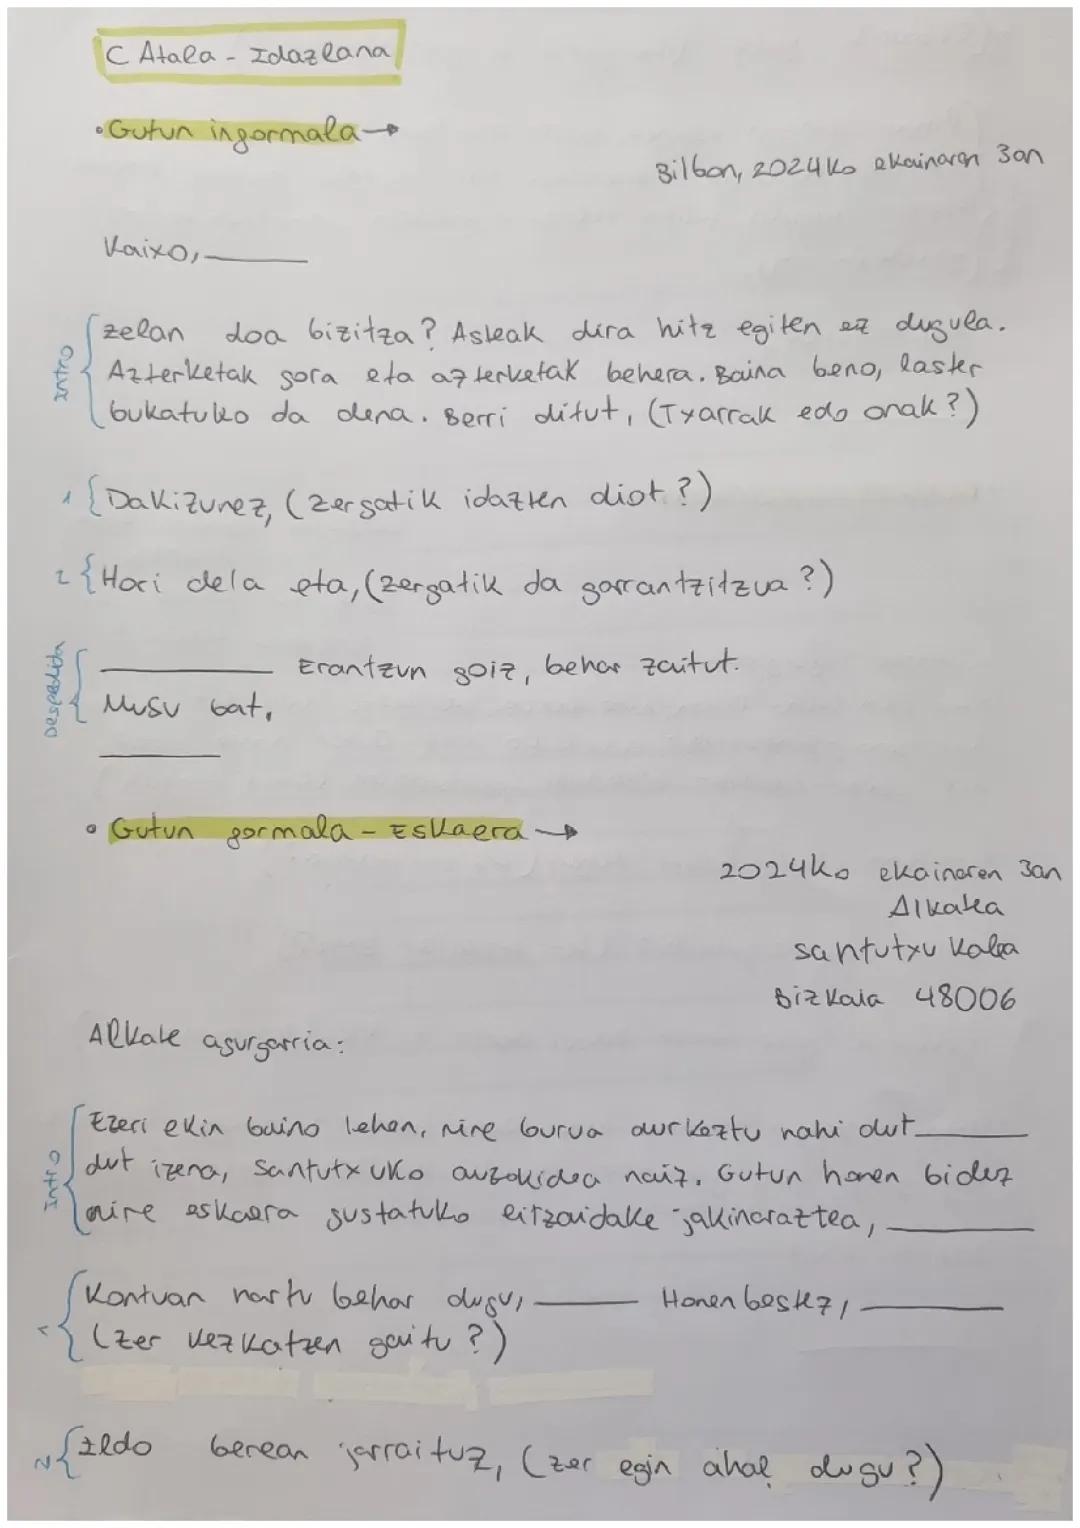 C Atala - Idazlana
• Gutun informala →
Bilbon, 2024ko ekainaren 3an
Kaixo, ______
Intro
zelan doa bizitza? Asleak dira hitz egiten ez dugula.
Azterketak gora eta azterketak behera. Baina beno, laster
bukatuko da dena. Berri ditut, (Txarrak edo onak?)
1 { Dakizunez, (zergatik idazten diot?)
2 { Hori dela eta, (zergatik da garrantzitzua?)
Despedida
______ Erantzun goiz, behar zaitut.
Musu bat,
______
• Gutun formala - Eskaera →
2024ko ekainaren 3an
Alkatea
Santutxu kalea
Bizkaia 48006
Alkate agurgarria:
Intro
Ezeri ekin baino lehen, nire burua aurkeztu nahi dut ______
dut izena, Santutxuko auzokidea naiz. Gutun honen bidez
nire eskaera sustatuko litzaidake jakinaraztea, ______
1 { Kontuan hartu behar dugu, ______ Honen bestez, ______
(zer kezkatzen gaitu?)
2 { Ildo berean jarraituz, (zer egin ahal dugu?)